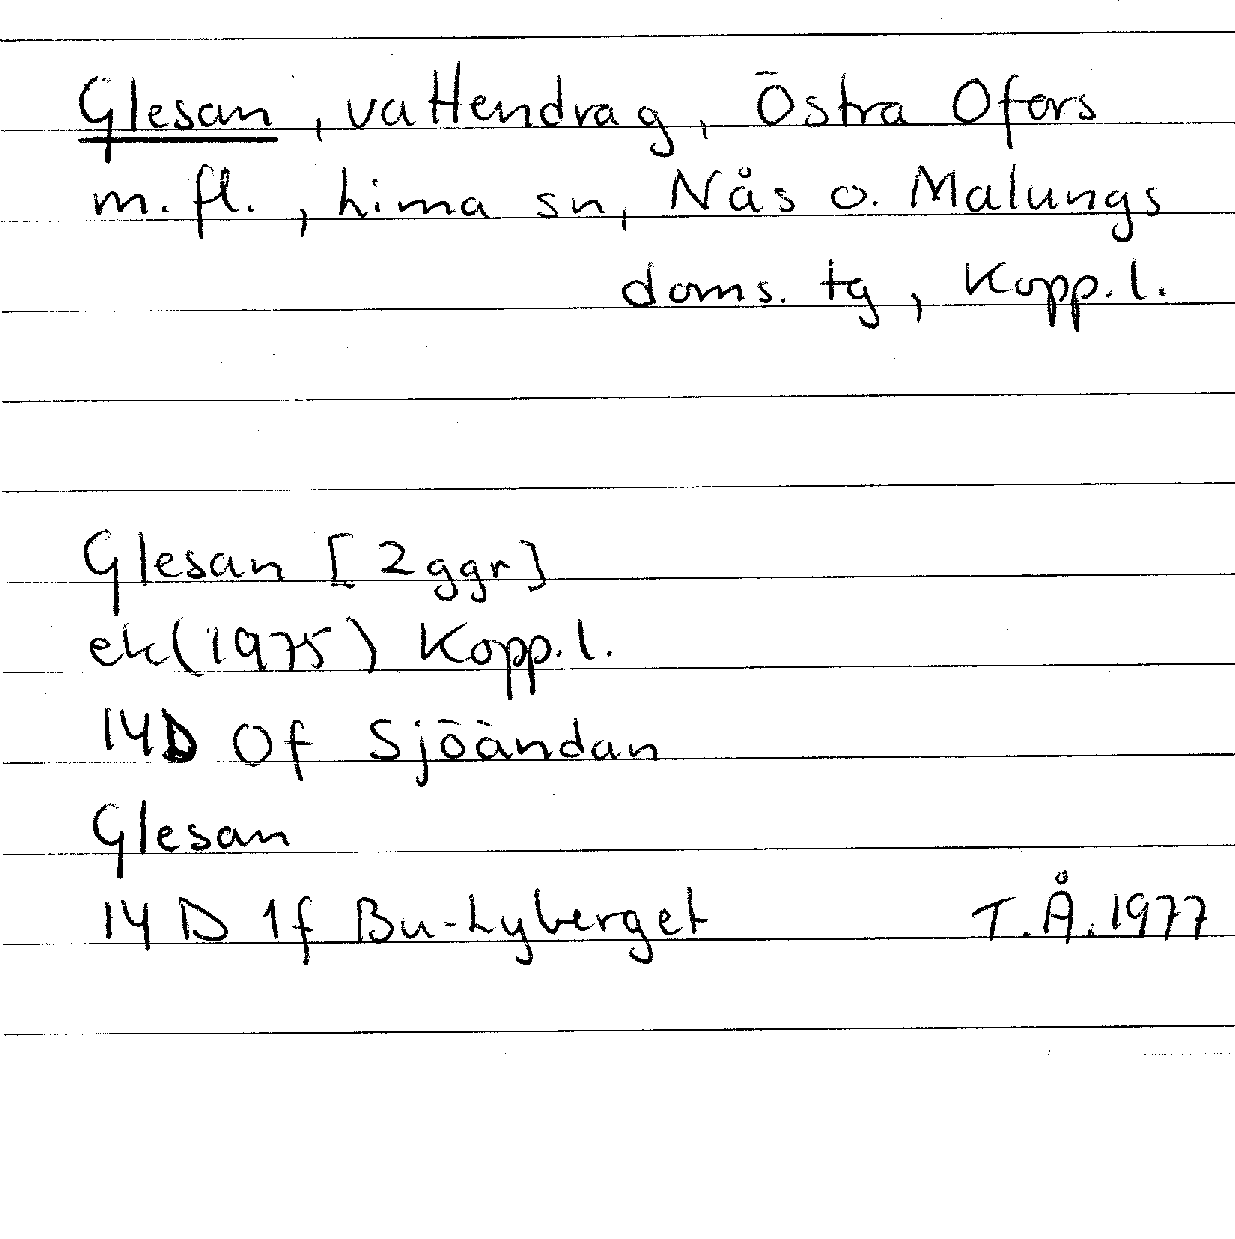 Glesan, vattendrag, Östra Ofors
m.fl., Lima sn, Nås o. Malungs
doms. tg, Kopp.l.
Glesan [2ggr]
ek(1975) Kopp.l.
14D 0f Sjöändan
Glesan
14 D 1f Bu-Lyberget T.Å.1977